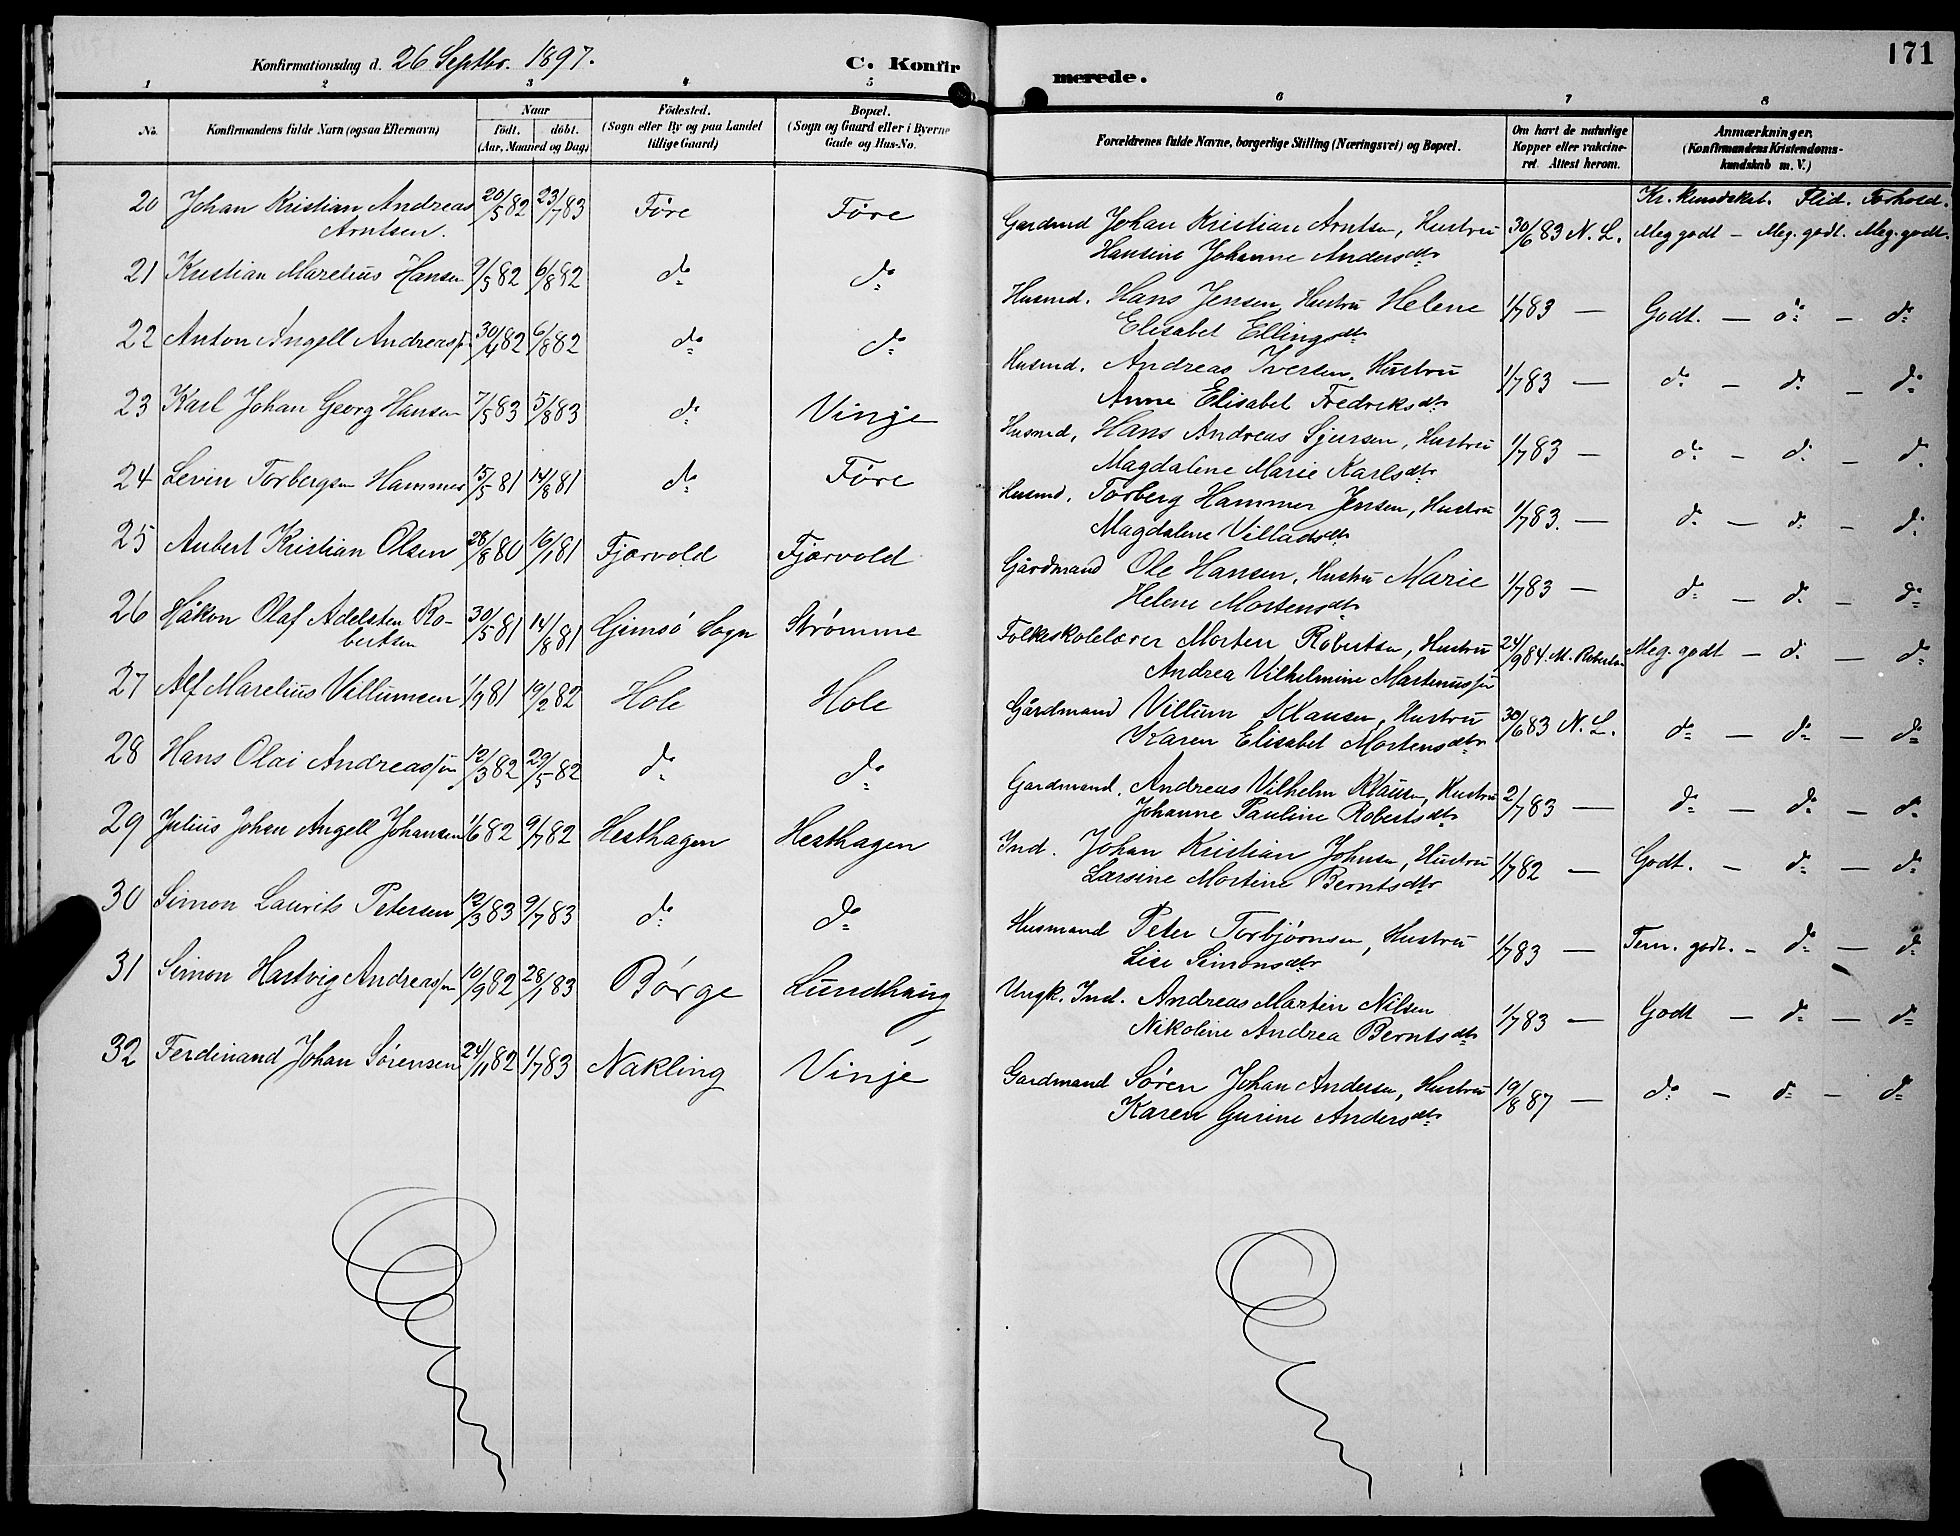 171
Konfirmationsdag d. 26 Septbr. 1897.
C. Konfirmerede.
1 2 3 4 5 6 7 8
No.
Konfirmandens fulde Navn (ogsaa Efternavn)
Naar
födt. döbt.
(Aar, Maaned og Dag)
Födested.
(Sogn eller By og paa Landet
tillige Gaard)
Bopæl.
(Sogn og Gaard eller i Byerne
Gade og Hus-No.
Forældrenes fulde Navne, borgerlige Stilling (Næringsvei) og Bopæl.
Om havt de naturlige
Kopper eller vakcine-
ret. Attest herom.
Anmærkninger.
(Konfirmandens Kristendoms-
kundskab m. V.)
Kr. kundskab. Flid. Forhold.
20 Johan Kristian Andreas Arntsen. 20/5 82 23/7 83 Före Före
Gardmd Johan Kristian Arntsen, Hustru Hansine Johanne Andersdtr 30/6 83 N. L. Meg godt – Meg. godt. Meg. godt.
21 Kristian Marelius Hansen 9/5 82 6/8 82 do do
Husmd. Hans Jensen, Hustru Helene Elisabet Ellingsdtr 1/7 83 — Godt. — do — do
22 Anton Angell Andreassen 30/4 82 6/8 82 do do
Husmd. Andreas Iversen, Hustru Anne Elisabet Fredriksdtr 1/7 83 — do – do – do
23 Karl Johan Georg Hansen 7/5 83 5/8 83 do Vinje
Husmd, Hans Andreas Sjursen, Hustru Magdalene Marie Karlsdtr 1/7 83 — do – do – do
24 Levin Torbergsen Hammer 15/5 81 14/8 81 do Före
Husmd. Torberg Hammer Jensen, Hustru Magdalene Villadsdtr 1/7 83. — do – do – do
25 Aubert Kristian Olsen 28/8 80 16/1 81 Fjærvold Fjærvold
Gårdmand Ole Hansen, Hustru Marie Helene Mortensdtr 1/7 83 — do – do – do
26 Håkon Olaf Adelsten Robertsen 30/5 81 14/8 81 Gimsö Sogn Strømme
Folkeskolelærer Morten Robertsen, Hustru Andrea Vilhelmine 24/9 84 M. Meg. godt – do — do
27 Alf Marelius Villumsen 1/9 81 19/2 82 Hole Hole
Gårdmand Villum Klausen, Hustru Karen Elisabet Mortensdtr 30/6 83 N. L. do – do – do
28 Hans Olai Andreassen 12/3 82 29/5 82 do do
Gardmand, Andreas Vilhelm Klausen, Hustru Johanne Pauline Robertsdtr 2/7 83 — do – do – do
29 Julius Johan Angell Johansen 1/6 82 9/7 82 Hesthagen Hesthagen
Ind. Johan Kristian Johnsen, Hustru Larsine Mortine Berntsdtr 1/7 82 — Godt. – do – do
30 Simon Laurits Petersen 12/3 83 9/7 83 do do
Husmand Peter Torbjørnsen, Hustru Lise Simonsdtr 1/7 83 — Tem. godt. – do – do
31 Simon Hartvig Andreassen 10/9 82 28/1 83 Börge Lundhaug
Ungk. Ind. Andreas Martin Nilsen Nikoline Andrea Berntsdtr 1/7 83 — Godt – do – do
32 Ferdinand Johan Sørensen 24/11 82 1/7 83 Nakling Vinje
Gardmand Sören Johan Andersen, Hustru Karen Gurine Andersdtr 19/8 87 — do – do – do